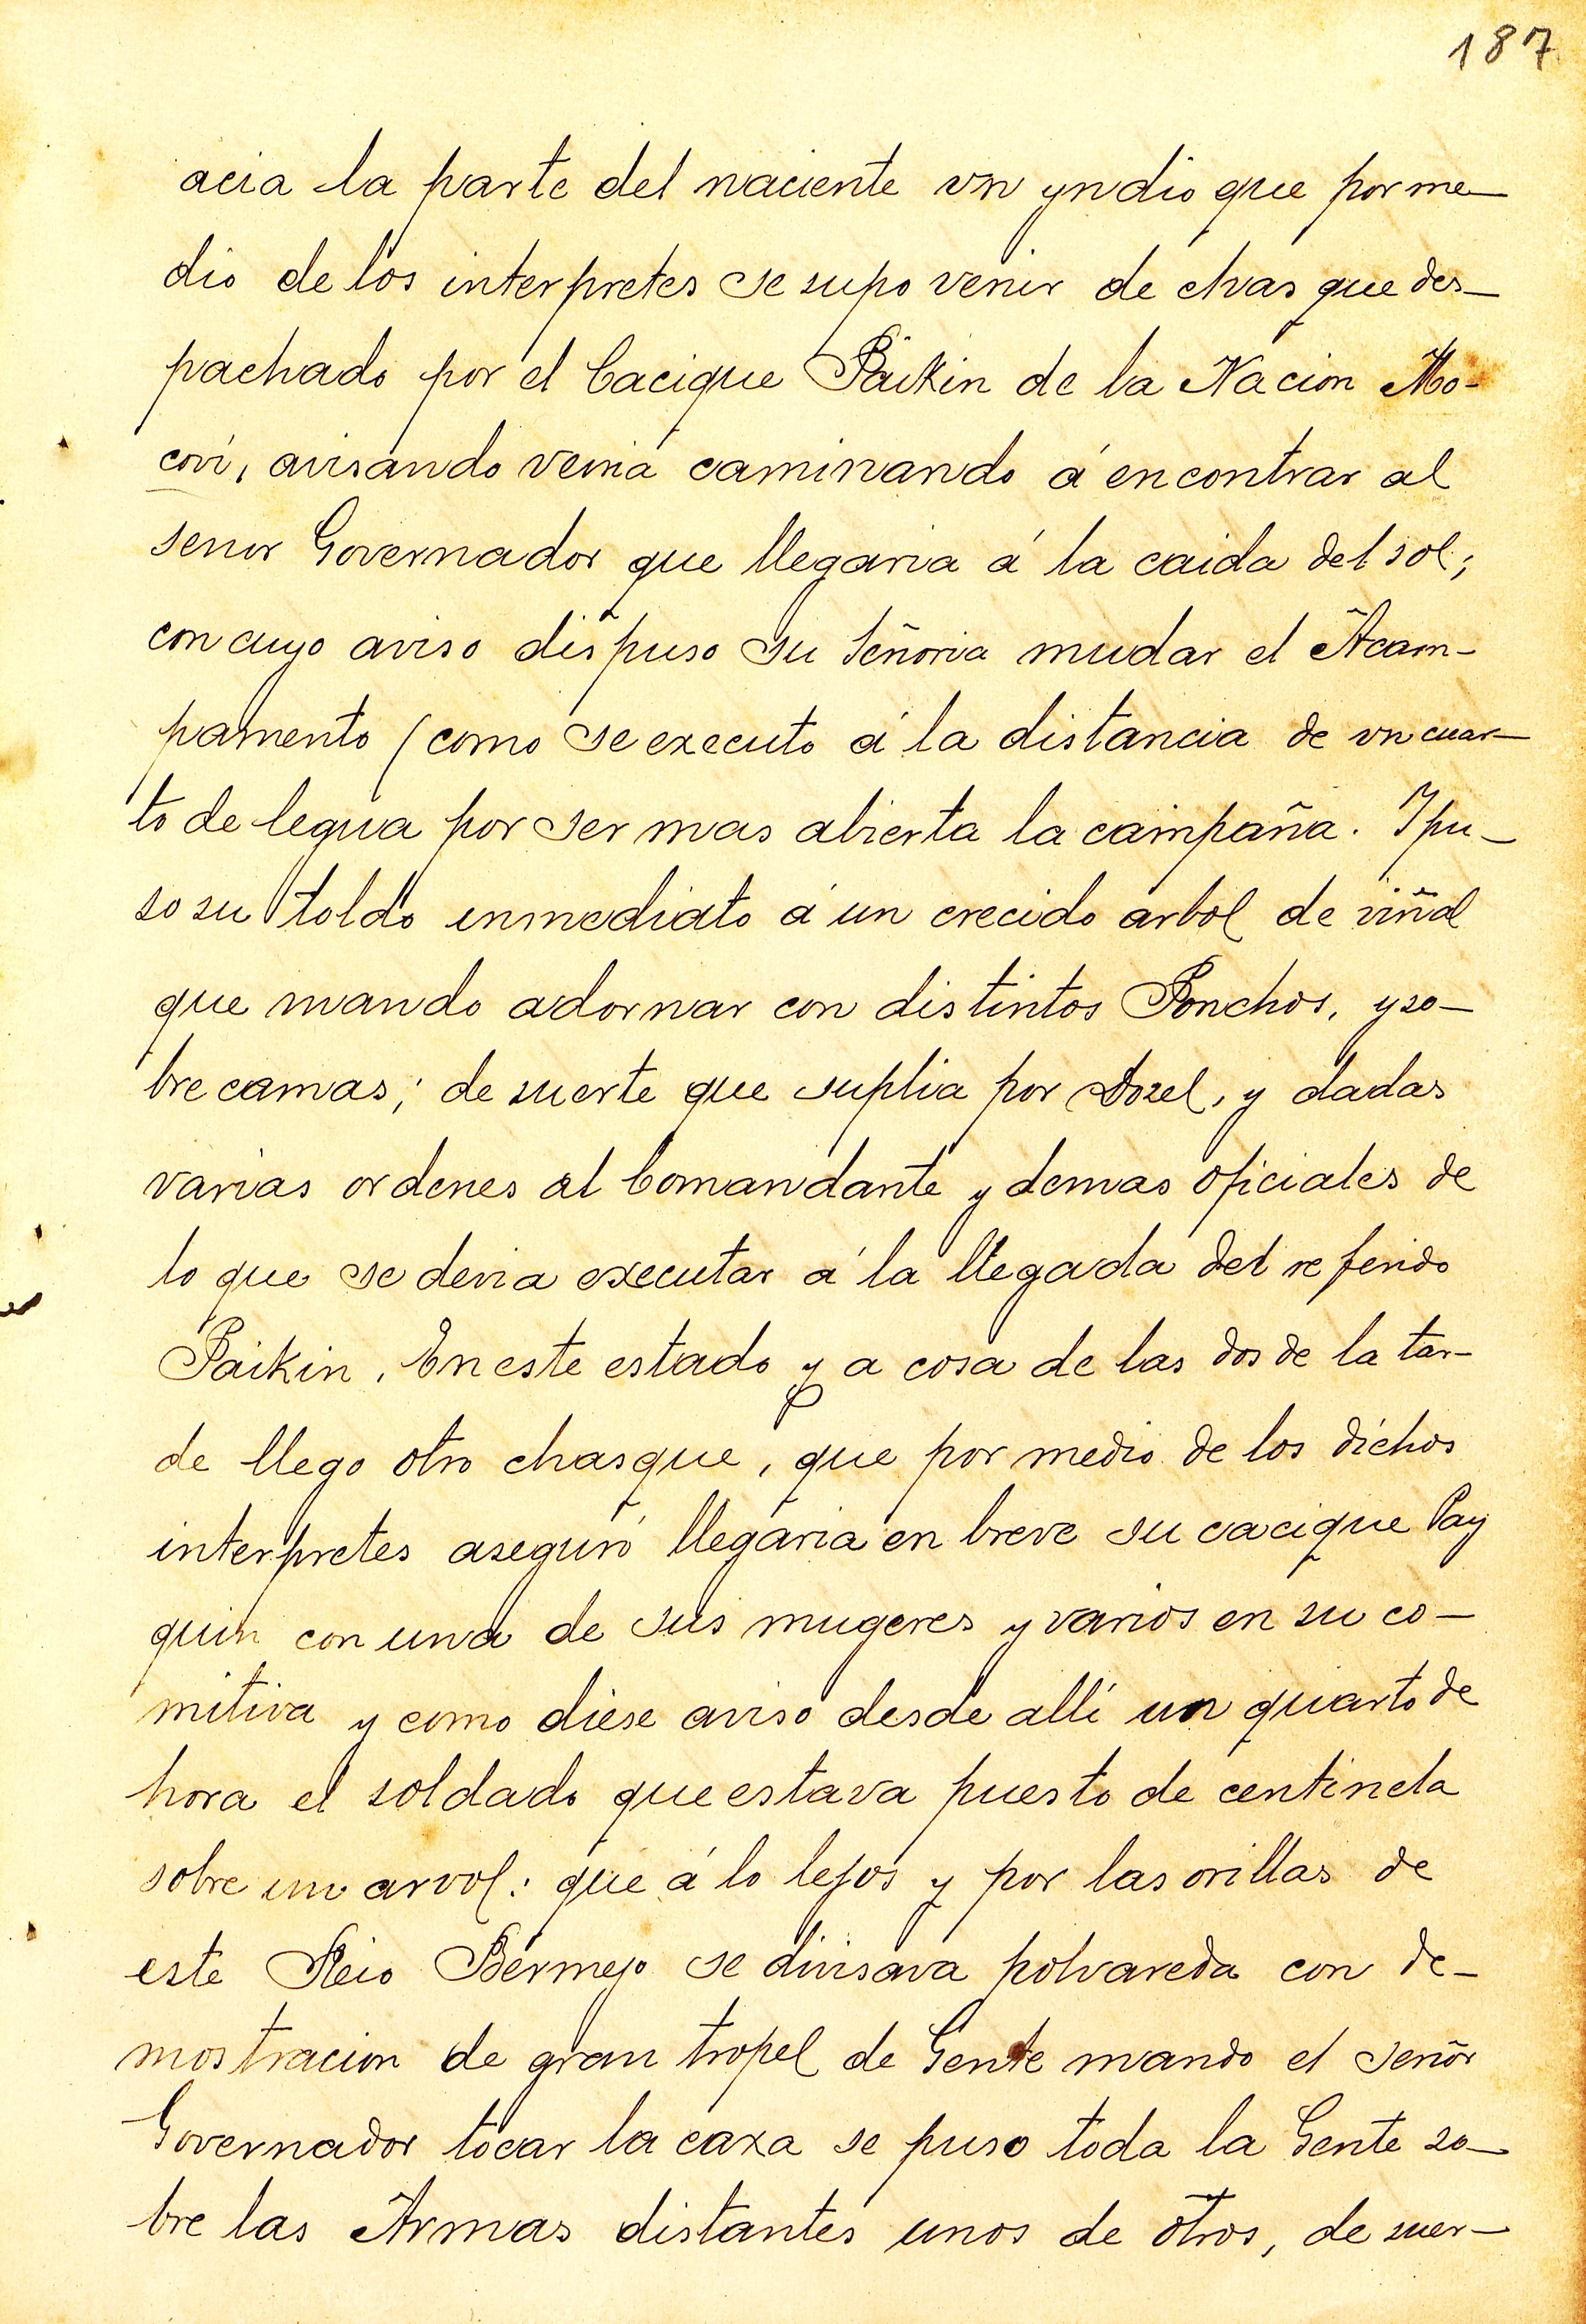 187
acia la parte del naciente vn yndio que por me-
dio de los interpretes se supo venir de chasque des-
pachado por el Cacique Paikin de la Nacion Mo-
coví, avisando venia caminando á encontrar al
senor Governador que llegaria á la caida del sol;
con cuyo aviso dispuso su Señoria mudar el Acam-
pamento (como se executo á la distancia de vn cuar-
to de legua por ser mas abierta la campaña. Y pu-
so su toldo inmediato á un crecido arbol de viñal
que mando adornar con distintos Ponchos, y so-
bre camas; de suerte que suplia por Dozel, y dadas
varias ordenes al Comandante y demas oficiales de
lo que se devia executar á la llegada del referido
Paikin. En este estado y a cosa de las dos de la tar-
de llego otro chasque, que por medio de los dichos
interpretes aseguró llegaria en breve su cacique Pay
quin con una de sus mugeres y varios en su co-
mitiva y como diese aviso desde allí un quarto de
hora el soldado que estava puesto de centinela
sobre un arvol: que á lo lejos y por las orillas de
este Rio Bermejo se divisava polvareda con de-
mostracion de gran tropel de Gente mando el señor
Governador tocar la caxa se puso toda la Gente so-
bre las Armas distantes unos de otros, de suer-